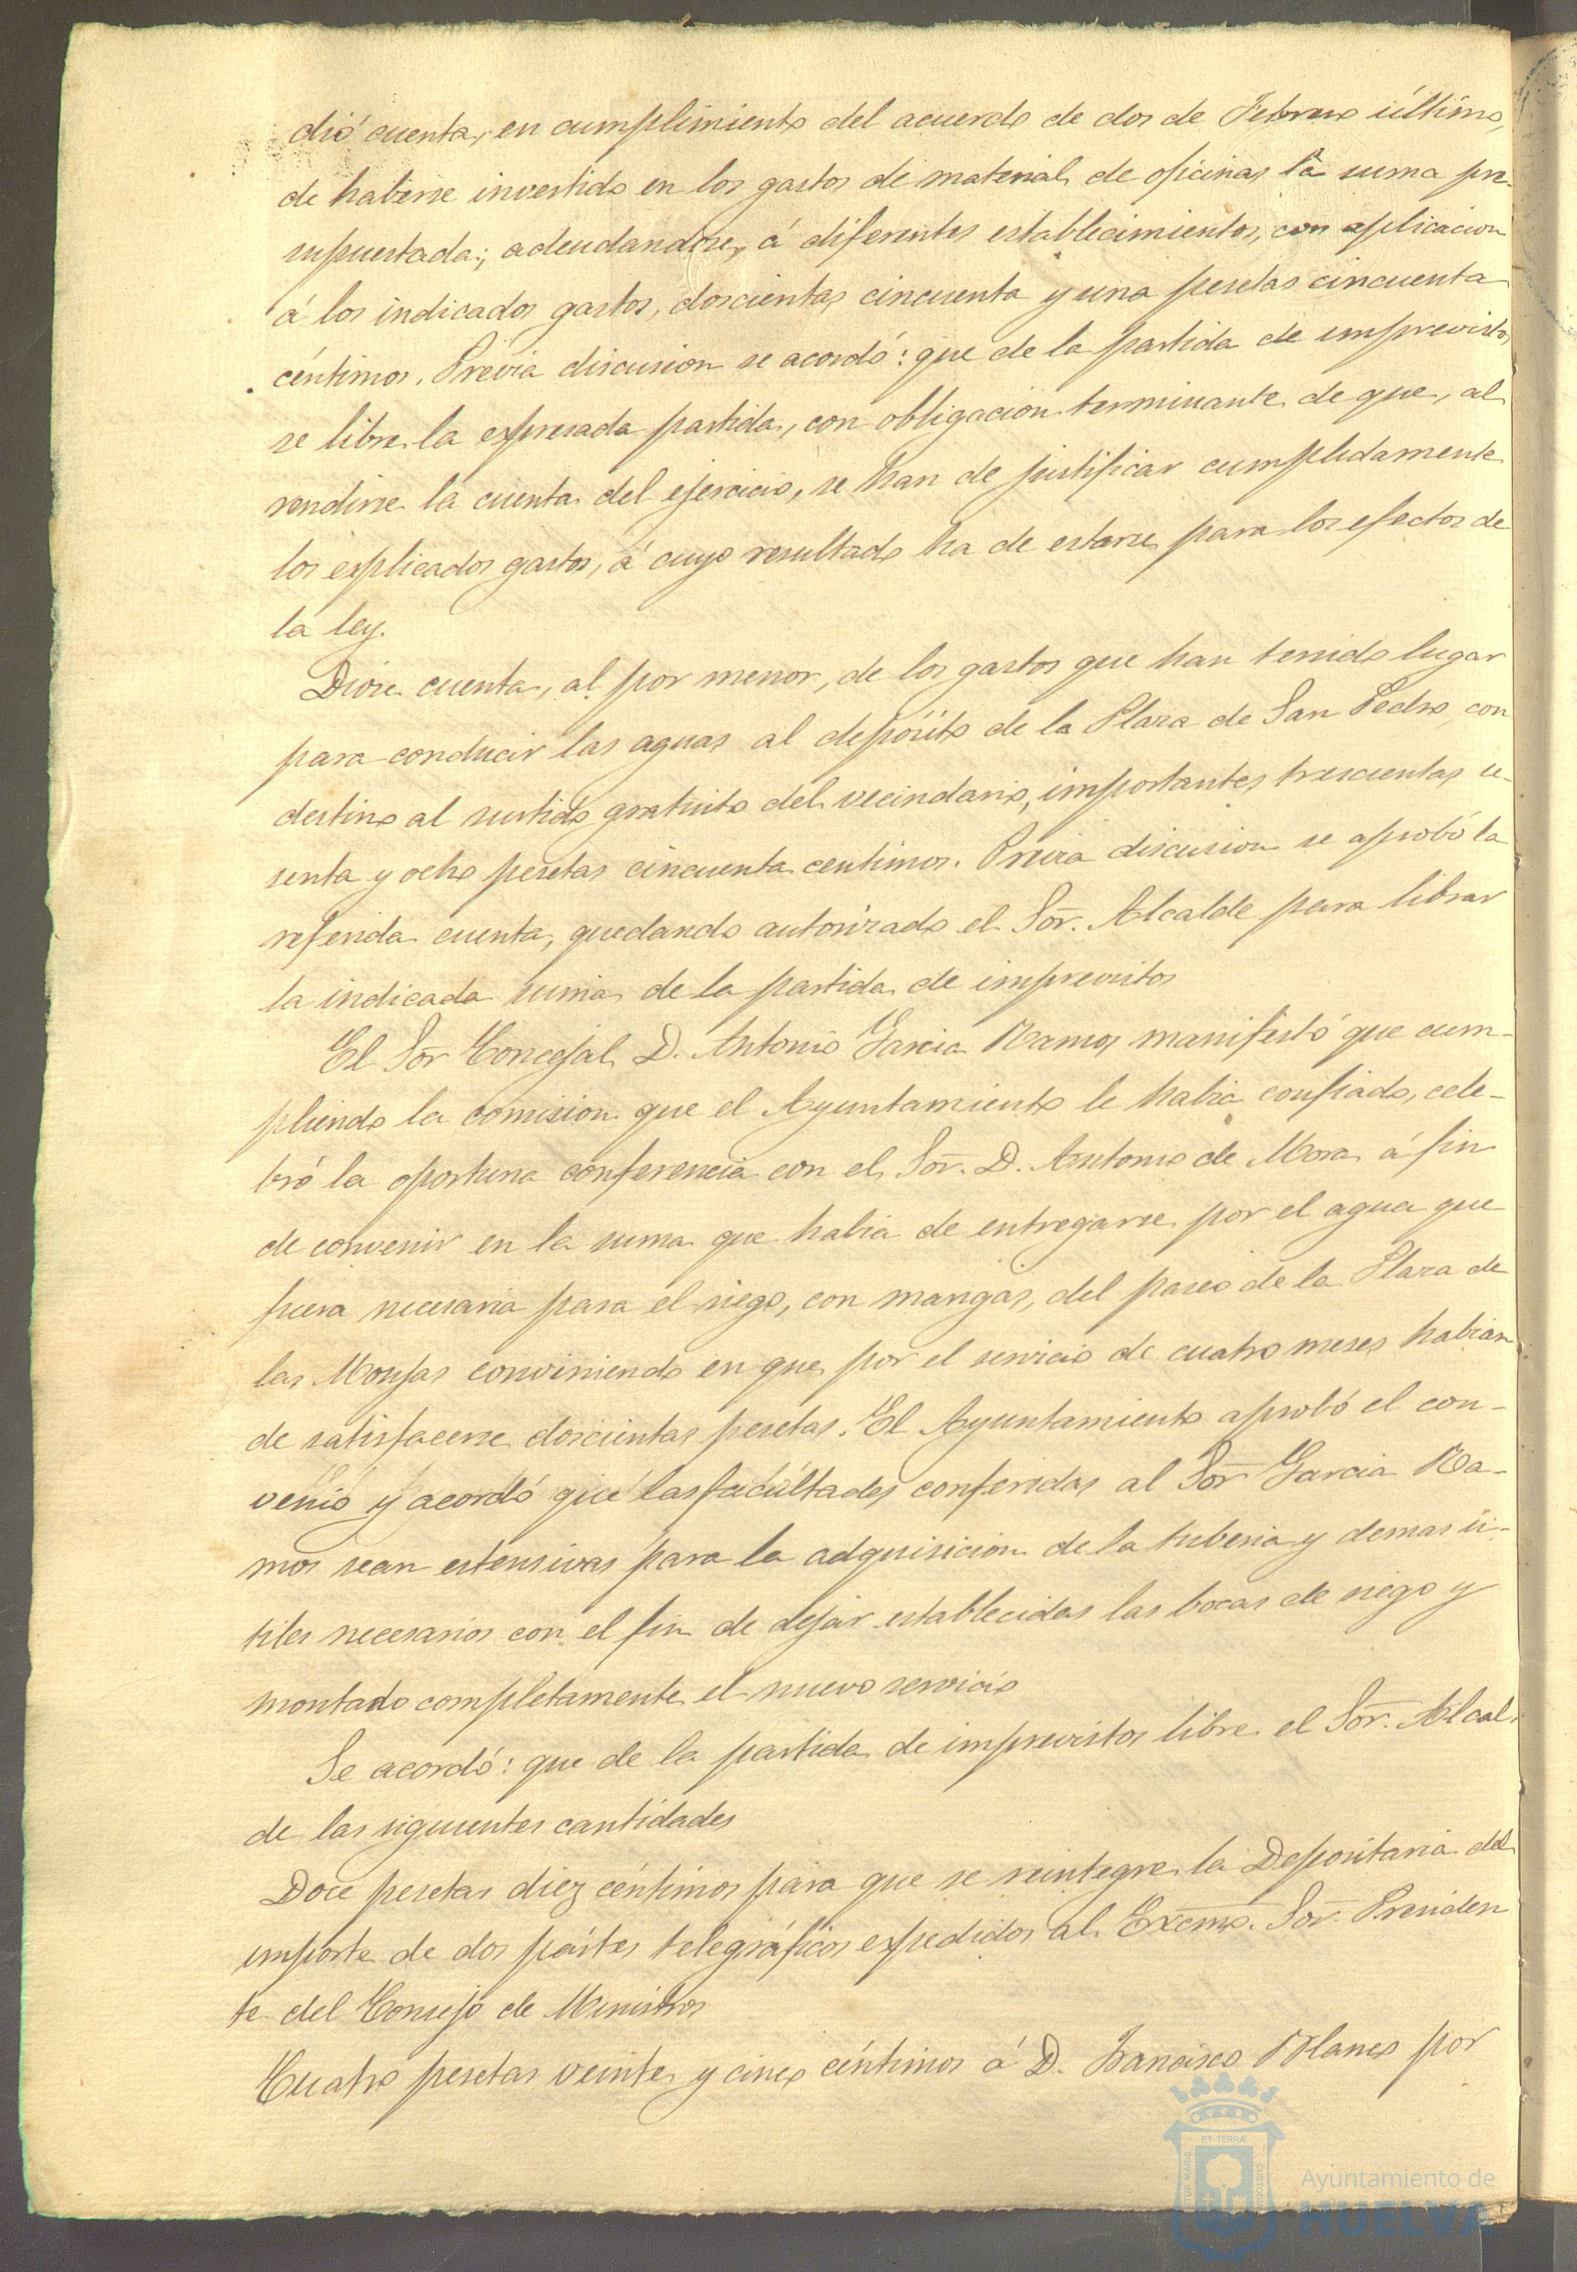 dió cuenta, en cumplimiento del acuerdo de dos de Febrero último,
de haberse invertido en los gastos de material de oficinas la suma pre-
supuestada; adeudandose, á diferentes establecimientos, con aplicacion
á los indicados gastos, doscientas cincuenta y una pesetas cincuenta
céntimos. Previa discusion se acordó: que de la partida de imprevistos
se libre la expresada partida, con obligacion terminante de que, al
rendirse la cuenta del ejercicio, se han de justificar cumplidamente
los explicados gastos, á cuyo resultado ha de estarse para los efectos de
la ley.
Diose cuenta, al por menor, de los gastos que han tenido lugar
para conducir las aguas al depósito de la Plaza de San Pedro, con
destino al surtido gratuito del vecindario, importantes trescientas se-
senta y ocho pesetas cincuenta centimos. Previa discusion se aprobó la
referida cuenta, quedando autorizado el Sor. Alcalde para librar
la indicada suma de la partida de imprevistos
El Sor Concejal D. Antonio Garcia Ramos manifestó que cum-
pliendo la comision que el Ayuntamiento le habia confiado, cele-
bró la oportuna conferencia con el Sor. D. Antonio de Mora á fin
de convenir en la suma que habia de entregarse por el agua que
fuera necesaria para el riego, con mangas, del paseo de la Plaza de
las Monjas conviniendo en que por el servicio de cuatro meses habian
de satisfacerse doscientas pesetas. El Ayuntamiento aprobó el con-
venio y acordó que las facultades conferidas al Sor Garcia Ra-
mos sean estensivas para la adquisicion de la tuberia y demas ú-
tiles necesarios con el fin de dejar establecidas las bocas de riego y
montado completamente el nuevo servicio
Se acordó: que de la partida de imprevistos libre el Sor. Alcal-
de las siguientes cantidades
Doce pesetas diez céntimos para que se reintegre la Depositaria del
importe de dos partes telegráficos expedidos al Excmo. Sor. Presiden
te del Consejo de Ministros
Cuatro pesetas veinte y cinco céntimos á D. Francisco Planes por
Ayuntamiento de
HUELVA